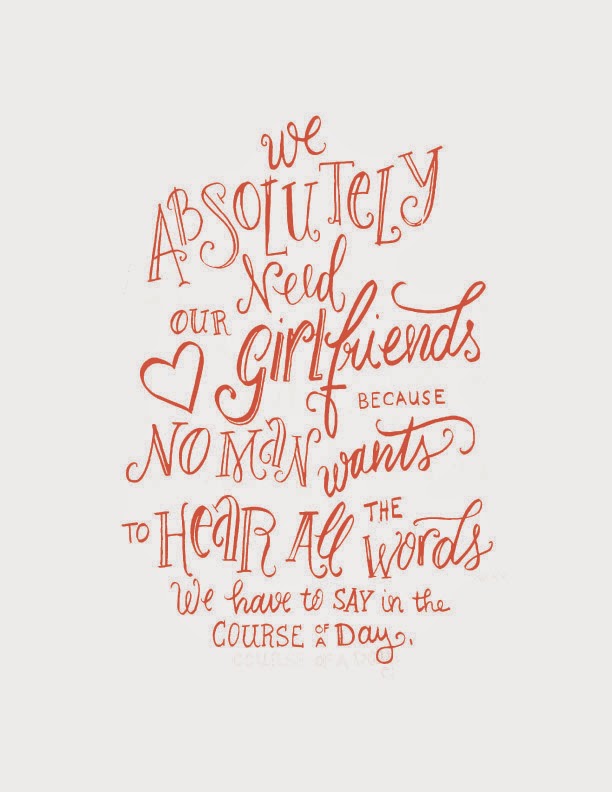 We
ABSOLUTELY
Need
OUR girlfriends
BECAUSE
NO MAN wants
TO HEAR All THE Words
We have to SAY in the
COURSE OF A Day.
COURSE OF A DAY